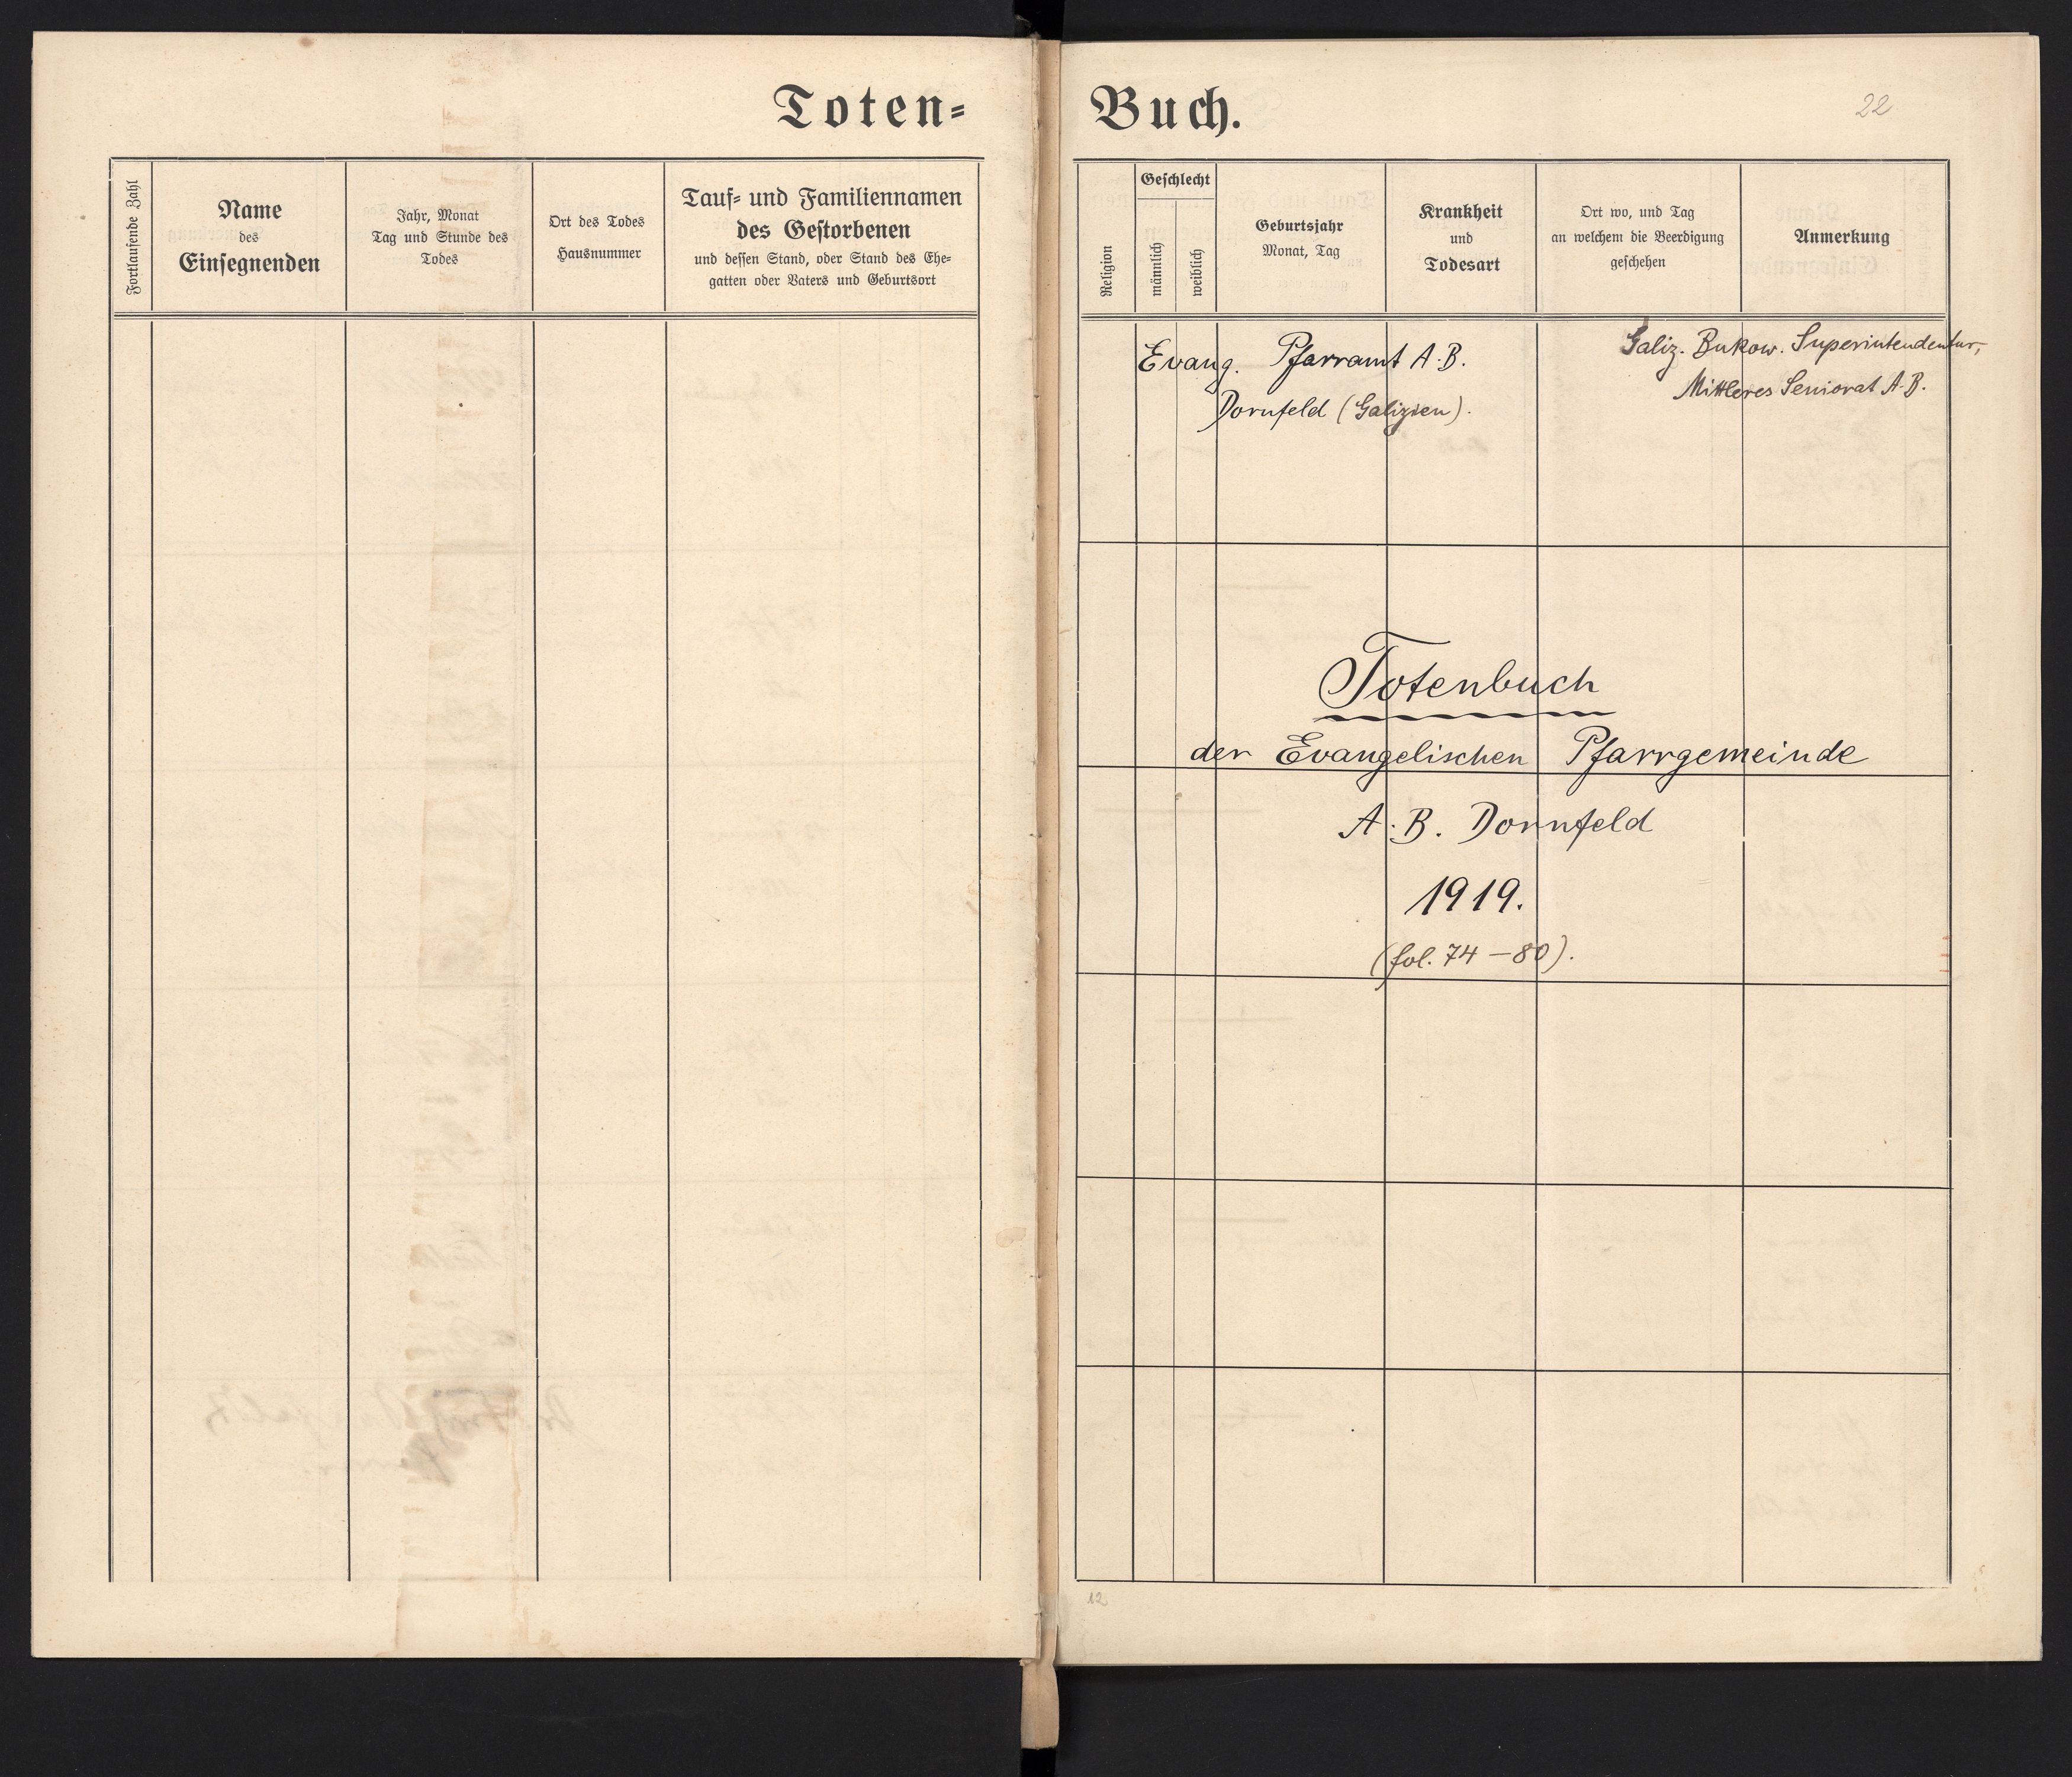 Toten=
Fortlaufende Zahl
Name
des
Einsegnenden
Jahr, Monat
Tag und Stunde des
Todes
Ort des Todes
Hausnummer
Tauf= und Familiennamen
des Gestorbenen
und dessen Stand, oder Stand des Ehe=
gatten oder Vaters und Geburtsort
Buch.
22
Religion
Geschlecht
männlich
weiblich
Geburtsjahr
Monat, Tag
Krankheit
und
Todesart
Ort wo, und Tag
an welchem die Beerdigung
geschehen
Anmerkung
Evang. Pfarramt A. B.
Dornfeld (Galizien).
Galiz. Bukow. Superintendentur,
Mittleres Seniorat A. B.
Totenbuch
der Evangelischen Pfarrgemeinde
A. B. Dornfeld
1919.
(fol. 74 – 80).
12